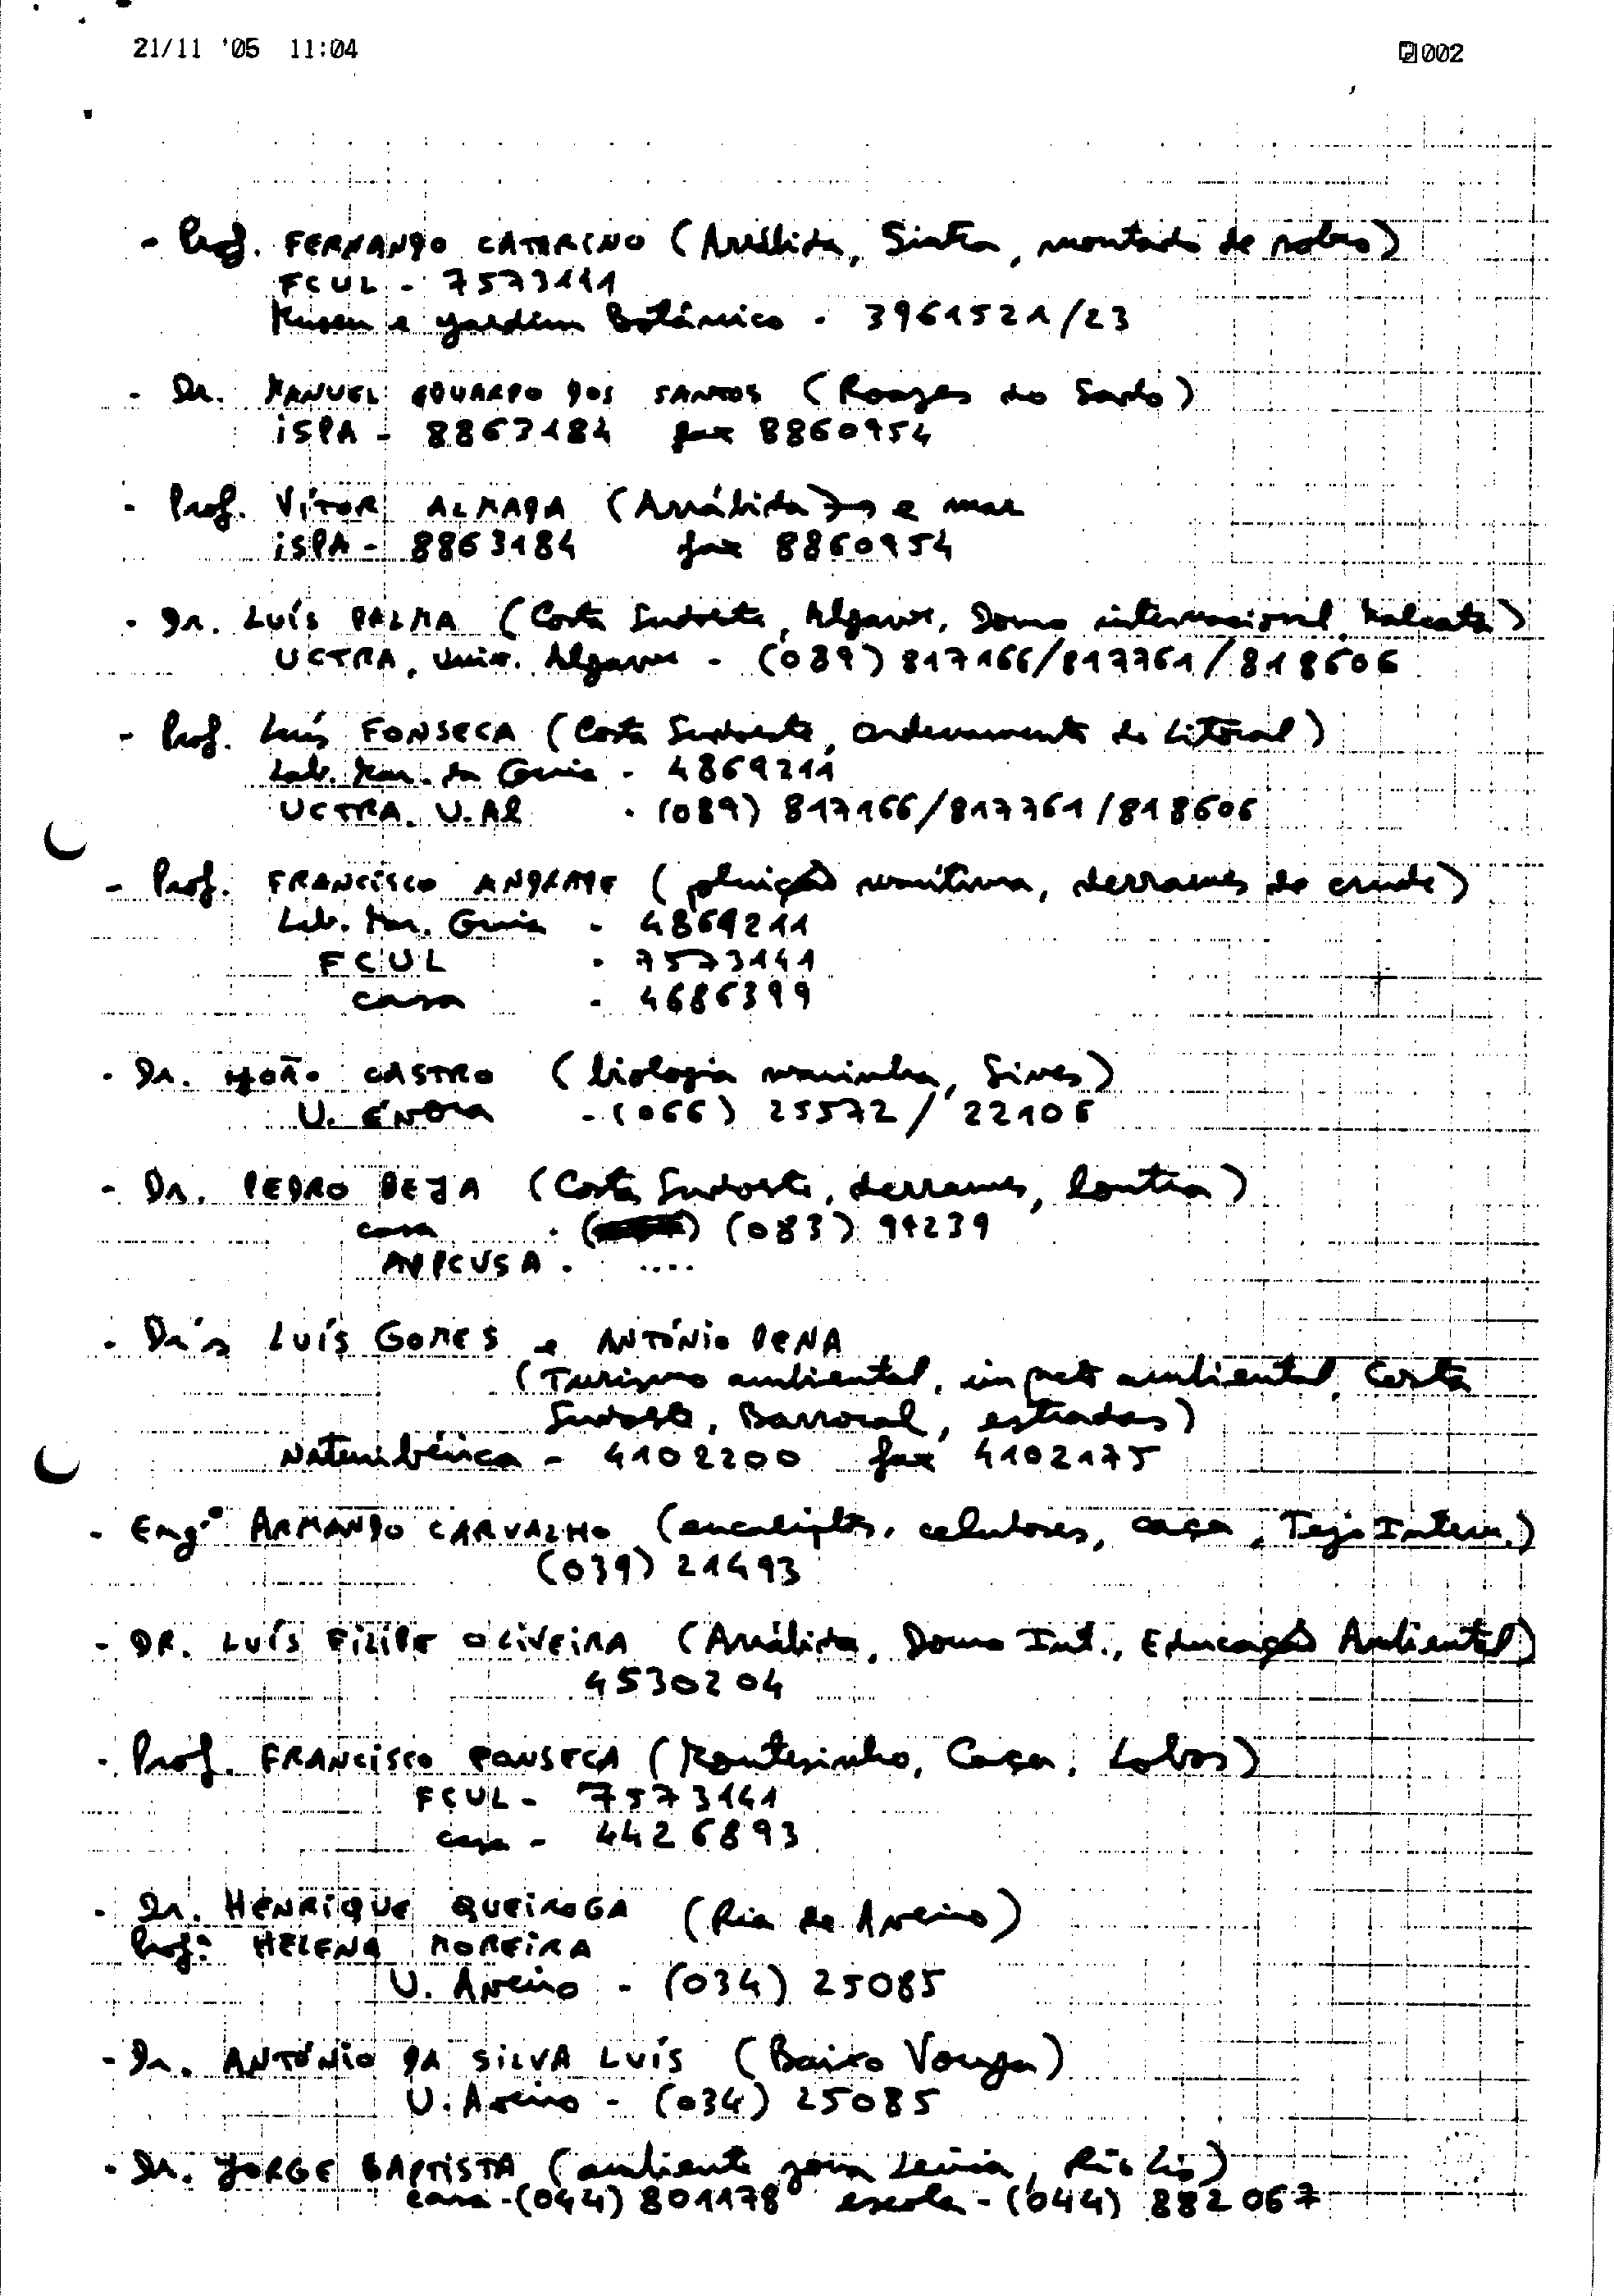 21/11 '05 11:04
002
- Prof. FERNANDO CATARINO (Arrábida, Sintra, montado de sobro)
FCUL - 7573141
Museu e Jardim Botânico - 3961521/23
- Dr. MANUEL EDUARDO DOS SANTOS (Roazes do Sado)
ISPA - 8863184 fax 8860954
- Prof. VÍTOR ALMADA (Arrábida) e mar
ISPA - 8863184 fax 8860954
- Dr. LUÍS PALMA (Costa Sudoeste, Algarve, Douro internacional, Malcata)
UCTRA, Univ. Algarve - (089) 817166/817761/818606
- Prof. Luís FONSECA (Costa Sudoeste, Ordenamento do Litoral)
Lab. Mar. da Guia - 4869211
UCTRA. U.Al - (089) 817166/817761/818606
- Prof. FRANCISCO ANDRADE (poluição marítima, derrames de crude)
Lab. Mar. Guia - 4869211
FCUL - 7573141
casa - 4686399
- Dr. JOÃO CASTRO (biologia marinha, Sines)
U. ÉVORA - (066) 25572 / 22106
- Dr. PEDRO BEJA (Costa Sudoeste, derrames, lontra)
casa - (083) 94239
APPCVSA - ....
- Drs LUÍS GOMES e ANTÓNIO PENA
(Turismo ambiental, impacto ambiental, Costa
Sudoeste, Barrocal, estradas)
Naturibérica - 4102200 fax 4102175
- Engº ARMANDO CARVALHO (eucaliptos, celuloses, caça, Tejo Intern.)
(039) 21493
- DR. LUÍS FILIPE OLIVEIRA (Arrábida, Douro Int., Educação Ambiental)
4530204
- Prof. FRANCISCO FONSECA (Montesinho, Caça, Lobos)
FCUL - 7573141
casa - 4426893
- Dr. HENRIQUE QUEIROGA (Ria de Aveiro)
Profª HELENA MOREIRA
U. Aveiro - (034) 25085
- Dr. ANTÓNIO DA SILVA LUÍS (Baixo Vouga)
U. Aveiro - (034) 25085
- Dr. JORGE BAPTISTA (ambiente zona Leiria, Rio Lis)
casa - (044) 801178 escola - (044) 882067